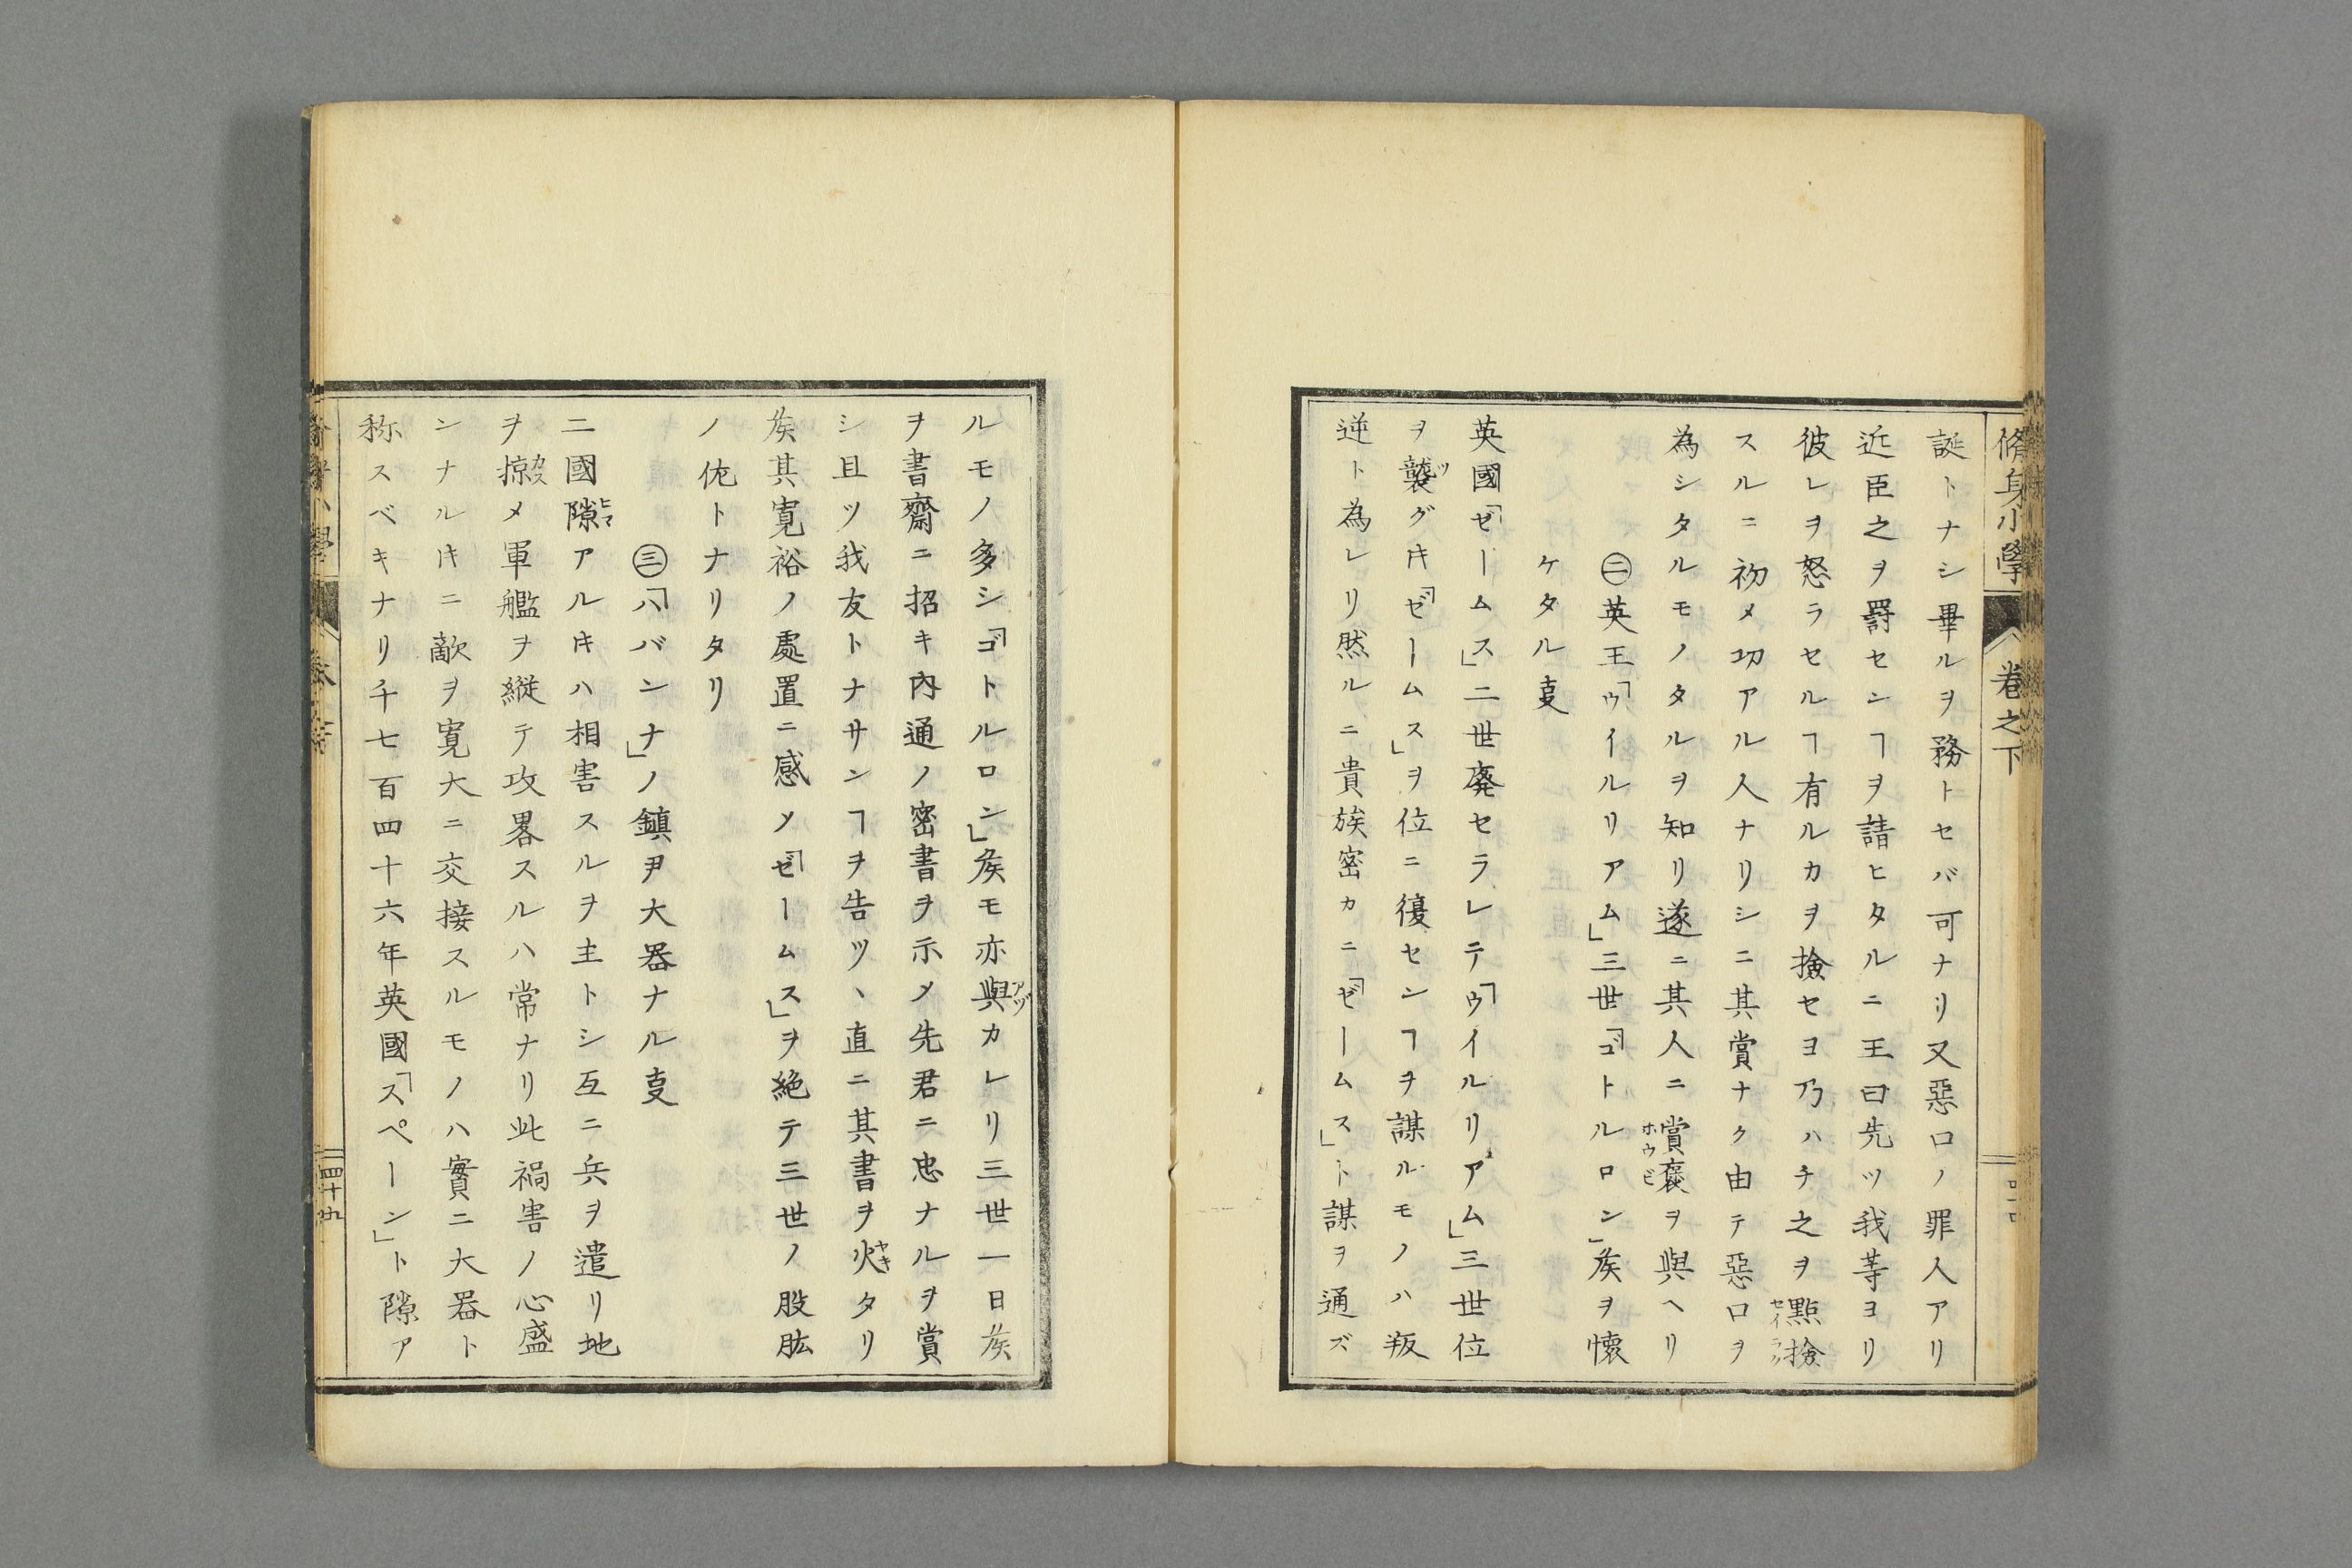 脩身小學 卷之下
誕トナシ畢ルヲ務トセバ可ナリ又惡口ノ罪人アリ
近臣之ヲ罸センヿヲ請ヒタルニ王曰先ツ我等ヨリ
彼レヲ怒ラセルヿ有ルカヲ撿セヨ乃ハチ之ヲ點撿セイラク
スルニ初メ功アル人ナリシニ其賞ナク由テ惡口ヲ
為シタルモノタルヲ知リ遂ニ其人ニ賞褒ホウビヲ與ヘリ
㊁英王「ウイルリアム」三世「ゴトルロン」矦ヲ懷
ケタル叓
英國「ゼームス」二世廢セラレテ「ウイルリアム」三世位
ヲ襲ツグ𪜈「ゼームス」ヲ位ニ復センヿヲ謀ルモノハ叛
逆ト為レリ然ルニ貴族密カニ「ゼームス」ト謀ヲ通ズ
ルモノ多シ「ゴトルロン」矦モ亦與アヅカレリ三世一日矦
ヲ書齋ニ招キ內通ノ密書ヲ示メ先君ニ忠ナルヲ賞
シ且ツ我友トナサンヿヲ告ツヽ直ニ其書ヲ火ヤキタリ
矦其寬裕ノ處置ニ感メ「ゼームス」ヲ絶テ三世ノ股肱
ノ佗トナリタリ
㊂「ハバンナ」ノ鎮尹大器ナル叓
二國隙ヒマアル𪜈ハ相害スルヲ主トシ互ニ兵ヲ遣リ地
ヲ掠カスメ軍艦ヲ縦テ攻畧スルハ常ナリ此禍害ノ心盛
ンナル𪜈ニ敵ヲ寬大ニ交接スルモノハ實ニ大器ト
称スベキナリ千七百四十六年英國「スペーン」ト隙ア
四十九